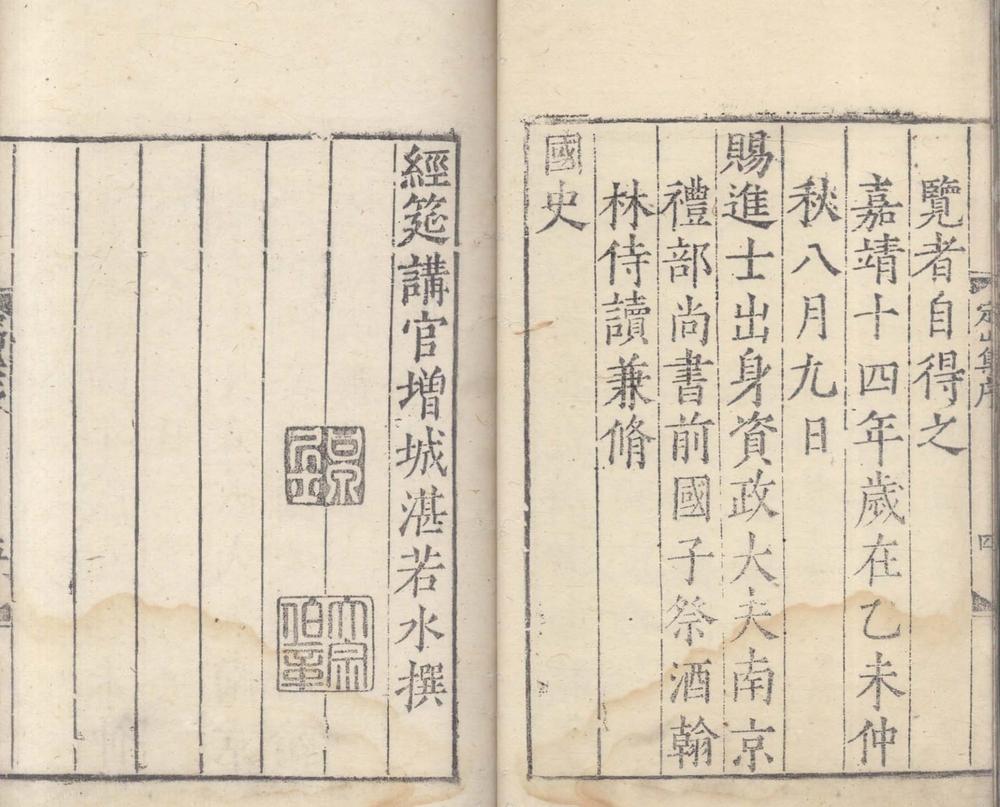 定山集序
四
覽者自得之
嘉靖十四年歲在乙未仲
秋八月九日
賜進士出身資政大夫南京
禮部尚書前國子祭酒翰
林侍讀兼脩
國史
經筵講官增城湛若水撰
大宗
伯章